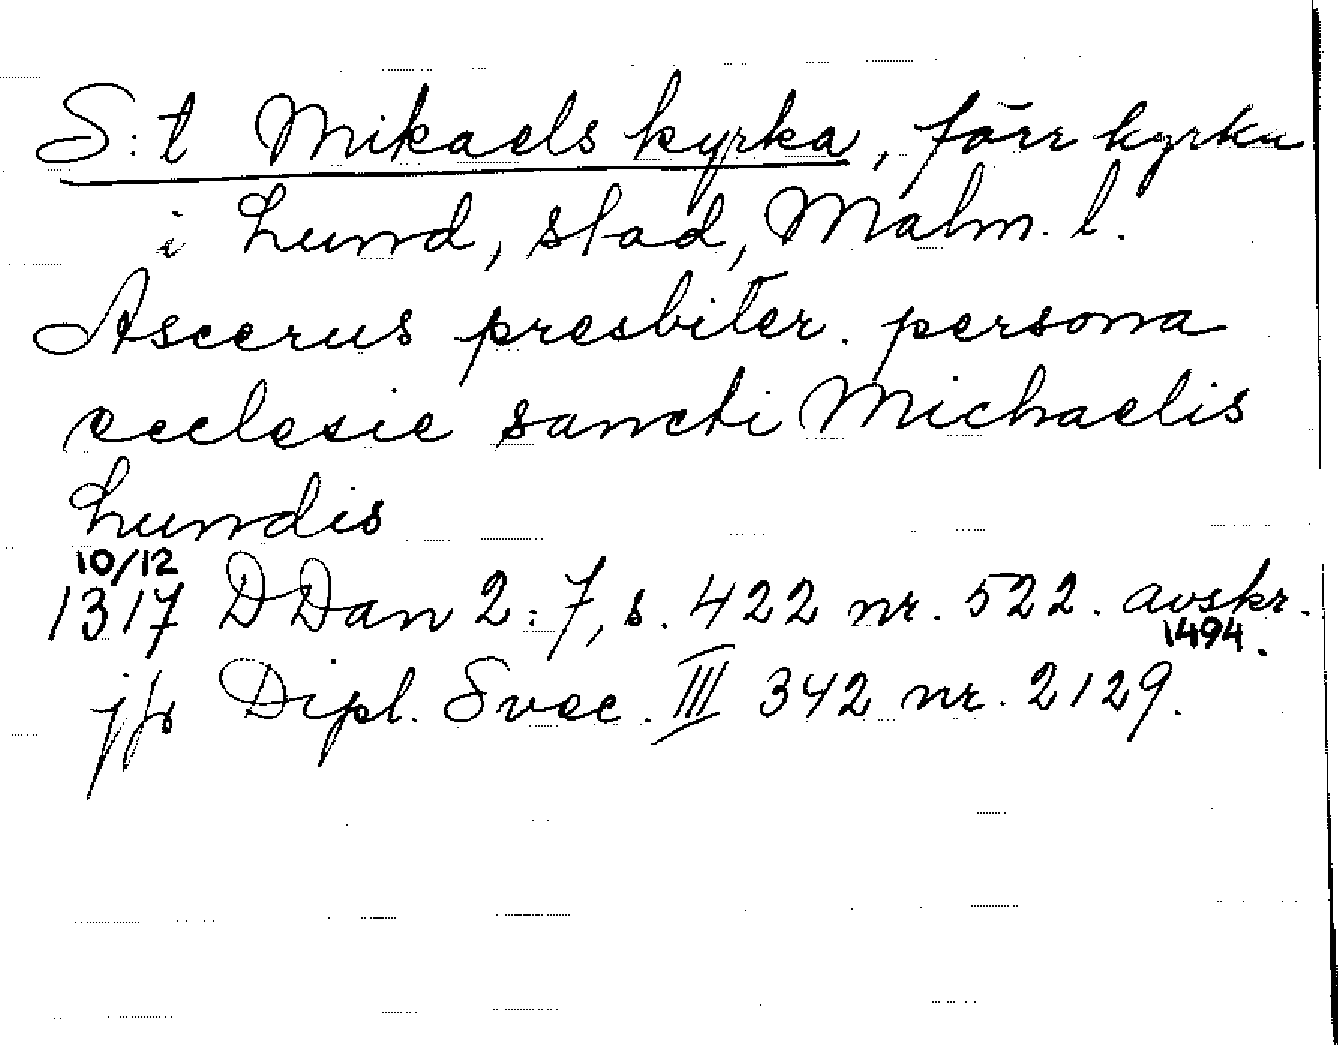 S:t Mikaels kyrka, förr kyrka
i Lund, stad, Malm. l.
Ascerus presbiter. persona
ecclesie sancti Michaelis
Lundis
10/12
1317 DDan 2:7, s. 422 nr. 522. avskr.
1494.
jfr Dipl. Svec. III 342 nr. 2129.